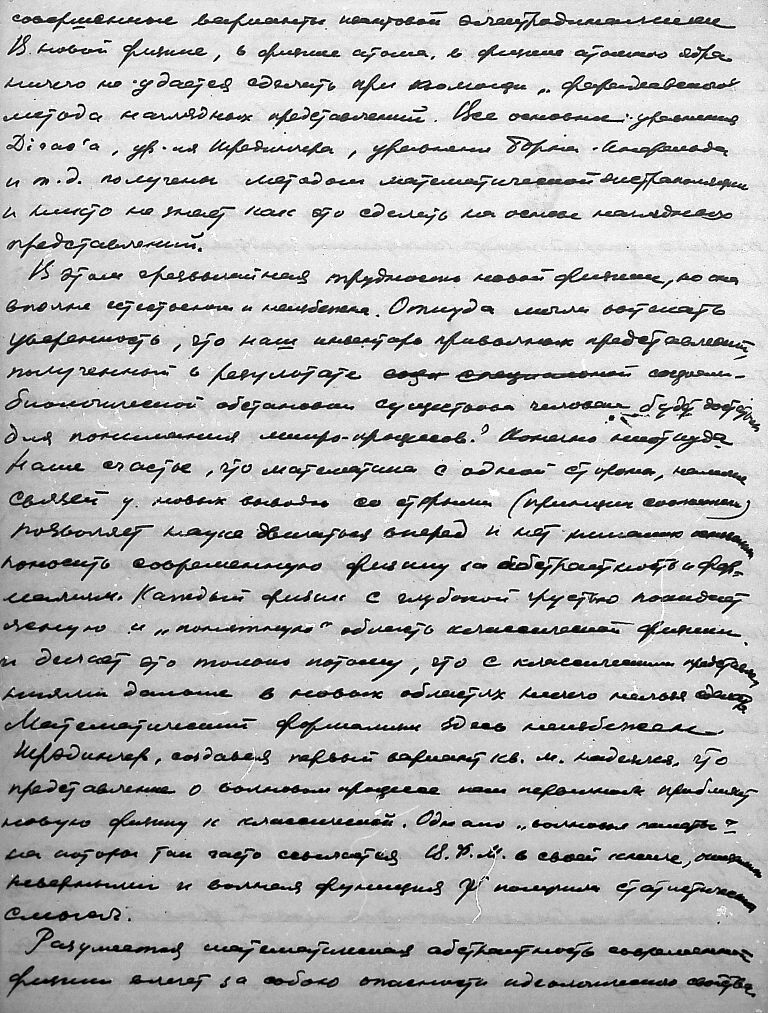 совершенные варианты квантовой электродинамики
В новой физике, в физике атома, в физике атомного ядра
ничего не удается сделать при помощи „фарадеевского"
метода наглядных представлений. Все основные уравнения
Dirac'a, ур-ия Шредингера, уравнения Борна-Инфельда
и т.д. получены методом математической экстраполяции
и никто не знает как это сделать на основе наглядных
представлений.
В этом чрезвычайная трудность новой физики, но она
вполне естественна и неизбежна. Откуда могли вытекать
уверенность, что наш инвентарь привычных представлений,
полученный в результате социально-
биологической обстановки существов. человека будут
для понимания микро-процессов? Конечно ниоткуда
Наше счастье, что математика с одной стороны, наличие
связей у новых выводов со старыми (принцип соответств.)
позволяет науке двигаться вперед и нет никакого основания
поносить современную физику за абстрактность и фор-
мализм. Каждый физик с глубокой грустью покидает
ясную и „понятную" область классической физики
и делает это только потому, что с классическими представле-
ниями дальше в новых областях ничего нельзя сделать
Математический формализм здесь неизбежен
Шрэдингер, создавая первый вариант кв. м. надеялся, что
представление о волновом процессе как первичном приблизит
новую физику к классической. Однако „волновые пакеты"
на которые так часто ссылается В.Ф.М. в своей книге, оказались
неверными и волновая функция ψ получила статистический
смысл.
Разумеется математическая абстрактность современной
физики влечет за собою опасности идеологического свойства.